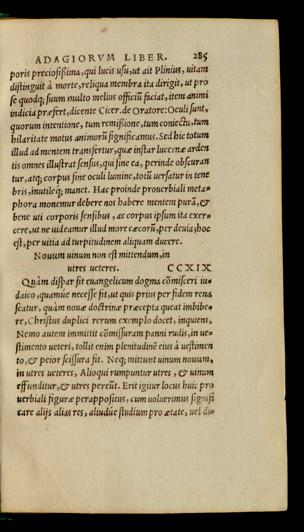 ADAGIORVM LIBER. 285
poris preciosißima, qui lucis usu, ut ait Plinius, uitam
distinguit à morte, reliqua membra ita dirigit, ut pro
se quodq; suum multo melius officiũ faciat, item animi
indicia præfert, dicente Cicer. de Oratore: Oculi sunt,
quorum intentione, tum remißione, tum coniectu, tum
hilaritate motus animorũ significamus. Sed hic totum
illud ad mentem transfertur, quæ instar lucernæ arden
tis omnes illustrat sensus, qui sine ea, perinde obscuran
tur, atq; corpus sine oculi lumine, totũ uersatur in tene
bris, inutileq; manet. Hac proinde prouerbiali meta-
phora monemur debere nos habere mentem purã, &
bene uti corporis sensibus, ac corpus ipsum ita exer-
cere, ut ne uideamur illud more cæcorũ, per deuia, hoc
est, per uitia ad turpitudinem aliquam ducere.
Nouum uinum non est mittendum, in
utres ueteres. CCXIX
Quàm dispar sit euangelicum dogma cõmisceri iu-
daico, quamue necesse sit, ut quis prius per fidem rena
scatur, quàm nouæ doctrinæ præcepta queat imbibe-
re, Christus duplici rerum exemplo docet, inquiens,
Nemo autem immittit cõmissuram panni rudis, in ue-
stimento ueteri, tollit enim plenitudinẽ eius à uestimen
to, & peior scissura fit. Neq; mittunt uinum nouum,
in utres ueteres, Alioqui rumpuntur utres, & uinum
effunditur, & utres pereũt. Erit igitur locus huic pro
uerbiali figuræ perappositus, cum uoluerimus signifi
care alijs alias res, aliudue studium pro ætate, uel di-